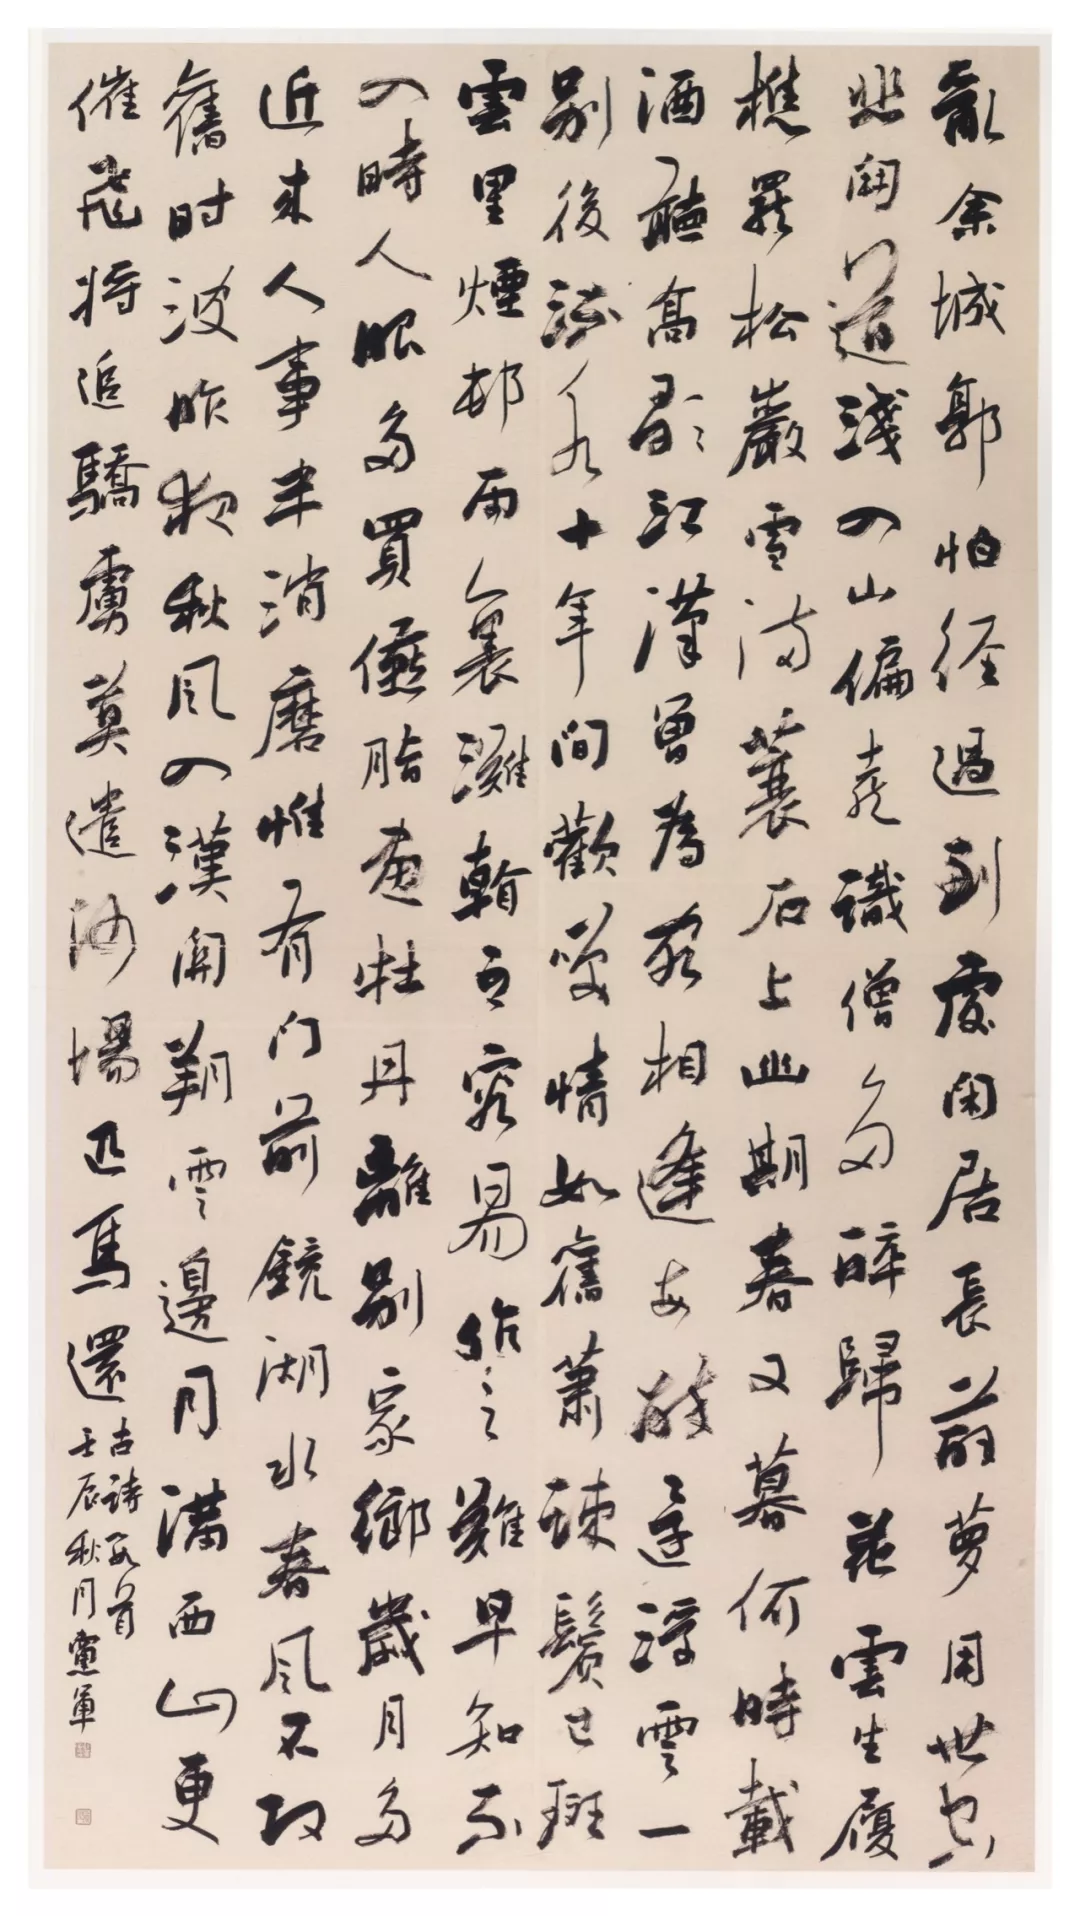 亂余城郭怕經過到處閑居長薜萝用世空
悲聞道淺入山偏喜識僧多醉歸花雲生履
樵罷松巖雪滿蓑石上幽期春又暮何時載
酒聽高歌江漢曾為客相逢每醉還浮雲一
別後流水十年間歡笑情如舊蕭疎鬢已斑
雲里煙邨雨裏灘看之容易作之難早知不
入時人眼多買脂畫牡丹離別家鄉歲月多
近來人事半消磨惟有门前鏡湖水春風不改
舊时波昨夜秋風入漢關朔雲邊月滿西山更
催飛將追驕虜莫遣沙場匹馬還
古詩數首
壬辰秋月軍